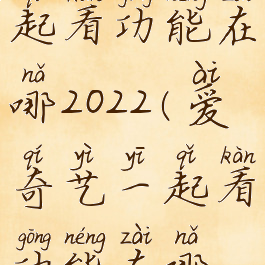 起看功能在
nǎ ài
哪2022(爱
qí yì yī qǐ kàn
奇艺一起看
gōng néng zài nǎ
功能在哪